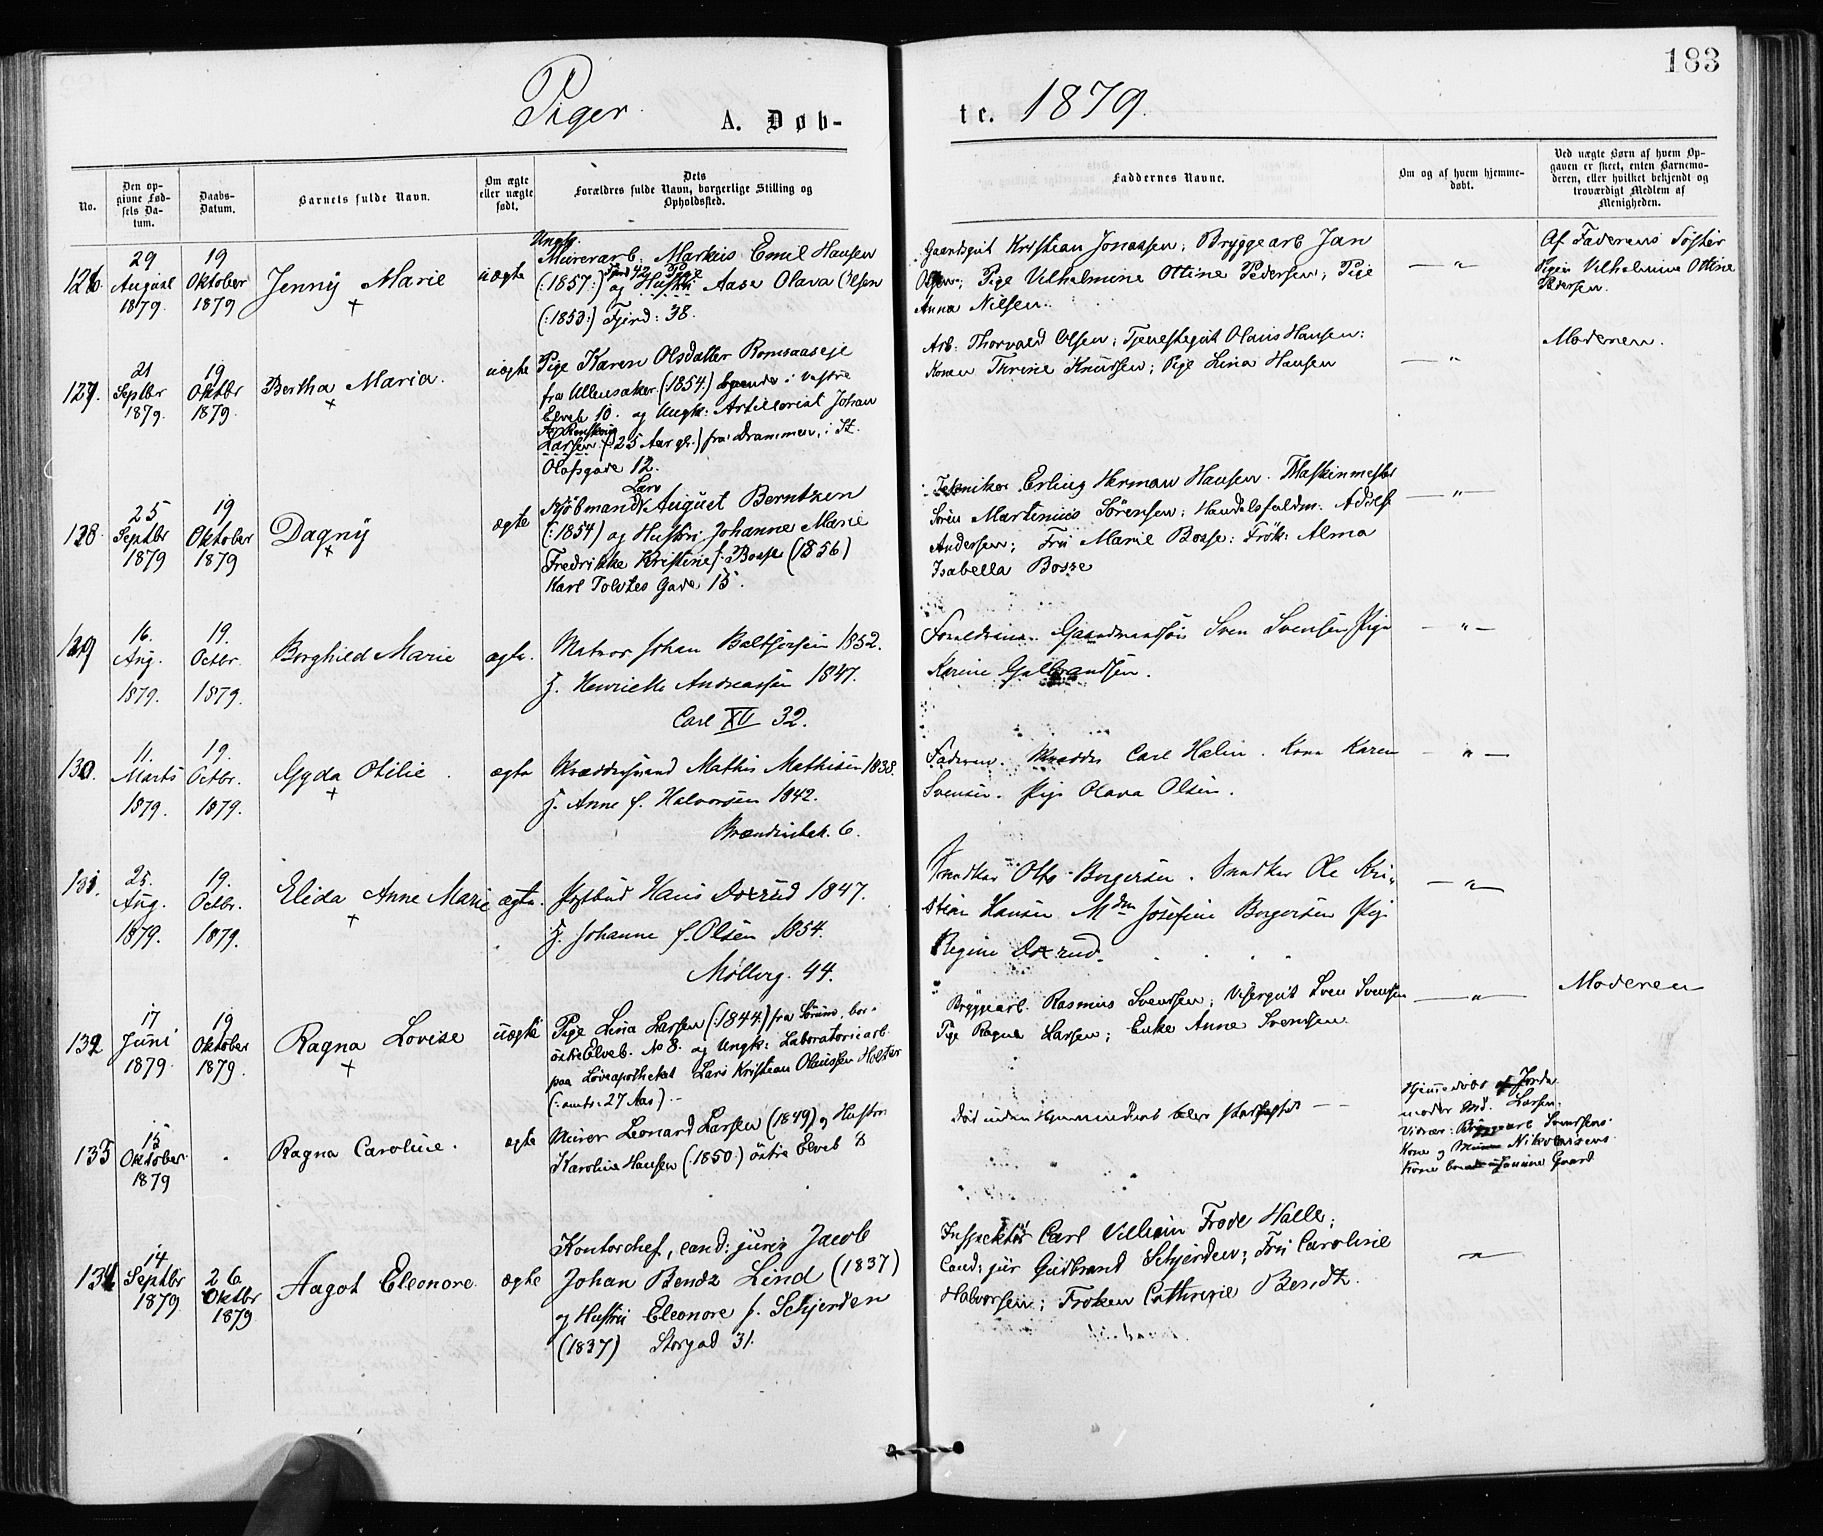 183
Piger A. Døb-
te. 1879.
No.
Den op-
givne Fød-
sels Da-
tum.
Daabs-
Datum.
Barnets fulde Navn.
Om ægte
eller uægte
født.
Dets
Forældres fulde Navn, borgerlige Stilling og
Opholdssted.
Faddernes Navne.
Om og af hvem hjemme-
døbt.
Ved uægte Børn af hvem Op-
gaven er skeet, enten Barnemo-
deren, eller hvilket bekjendt og
troværdigt Medlem af
Menigheden.
126.
29
August
1879.
19
Oktober
1879
Jenny Marie
+
uægte
Ungk.
Murerarb. Markus Emil Hansen
(:1857:) og Hustru Pige Aase Olava Olsen
(:1853:) Fjerd: 38.
Gaardsgut Kristian Jonassen; Bryggearb Jan
Olsen; Pige Vilhelmine Ottine Pedersen; Pige
Anna Nilsen.
— " —
Af Faderens Søster
Pigen Vilhelmine Ottine
Pedersen.
127.
21
Septbr
1879.
19
Oktbr
1879.
Bertha Maria.
+
uægte
Pige Karen Olsdatter Romsaaseje
fra Ullensaker (1854.) boende i Vestre
Elveb 10. og Ungk: Artillerist Johan
Larsen (:25 Aar gl.) fra Drammen, i St.
Olafsgade 12.
Arb: Thorvald Olsen; Tjenestegut Olaus Hansen;
Konen Thrine Knutsen; Pige Lina Hansen
— " —
Moderen.
128.
25
Septbr
1879
19
Oktober
1879
Dagny
+
ægte
Kjøbmand Lars August Berntzen
(:1854) og Hustru Johanne Marie
Fredrikke Kristine f. Bosse (1856)
Karl Tolvtes Gade 15.
Tekniker Erling Herman Hansen. Maskinmester
Søren Martinius Sørensen; Handelsfuldm. Adolf
Andersen; Fru Marie Bosse; Frøk: Alma
Isabella Bosse
— " —
129
16.
Aug.
1879.
19.
Octbr.
1879.
Borghild Marie
ægte.
Matros Johan Baltsersen 1852.
H. Henriette Andreassen 1847.
Carl XII 32.
Forældrene. Gaardmandssøn Sven Svensen Pige
Karine Gulbrandsen.
— " —
130.
11.
Marts
1879.
19.
Octbr.
1879.
Gyda Otilie.
+
ægte
Skræddersvend Mathis Mathisen 1838.
H. Anne f. Halvorsen 1842.
6.
Faderen. Skrædder Carl Halin. Kone Karen
Svensen. Pige Olava Olsen.
— " —
131.
25.
Aug.
1879.
19.
Octbr.
1879.
Elida Anne Marie
+
ægte.
Hans Doxrud 1847.
H. Johanne f. Olsen 1854.
Møllerg. 44.
Snedker Otto Borgersen. Snedker Ole Kri-
stian Hansen Mdm Josefine Borgersen Pige
Regine Doxrud.
— " —
132
17
Juni
1879.
19
Oktober
1879.
Ragna Lovise
+
uægte
Pige Lina Larsen (:1844:) fra Sørum, bor
østre Elveb. No 8. og Ungk: Laboratoriearb.
paa Løveapotheket Lars Kristian Olaussen Holter
(:omtr: 27 Aar)
Bryggearb. Rasmus Svensen; Visergut Sven Svensen
Pige Ragna Larsen; Enke Anne Svensen.
— " —
Moderen
133
15
Oktober
1879
Ragna Caroline.
ægte
Murer Leonard Larsen (1849) og Hustru
Karoline Hansen (:1850:) østre Elveb 8
Død uden Hjemmedaab blev stadfæstet — —
Hjemmedøbt af Jorde
moder Md. Larsen.
Vidner: Bryggearb Svensens
Kone og Nikolaisens
Kone Gaard
134
14
Septbr
1879
26
Oktbr
1879
Aagot Eleonore.
ægte
Kontorchef, cand: juris Jacob
Johan Bendz Lind (1837)
og Hustru Eleonore f. Schjerden
(1837) Storgad 31.
Inspektør Carl Vilhelm Frode Halle;
Cand: jur Gudbrand Schjerden; Fru Caroline
Halvorsen; Frøken Cathrine Bendz.
— " —